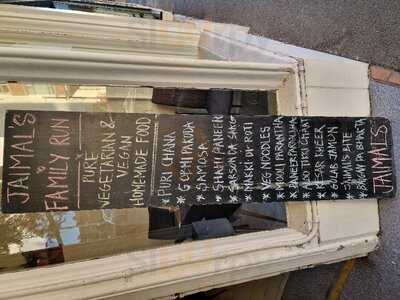 JAIMAL'S
FAMILY RUN
PURE
VEGETARIAN &
VEGAN
HOMEMADE FOOD
* PURI CHANA
* GOBHI PAKODA
* SAMOSA
* SHAHI PANEER
* SARSON DA SAAG
* MAKKI DI ROTI
* VEG NOODLES
* MOOLI PARANTHA
* PANEER PARANTHA
* ALOO TIKKI CHAAT
* KESAR KHEER
* GULAB JAMUN
* JAIMALS BITE
* BAIGAN DA BHARTA
JAIMAL'S